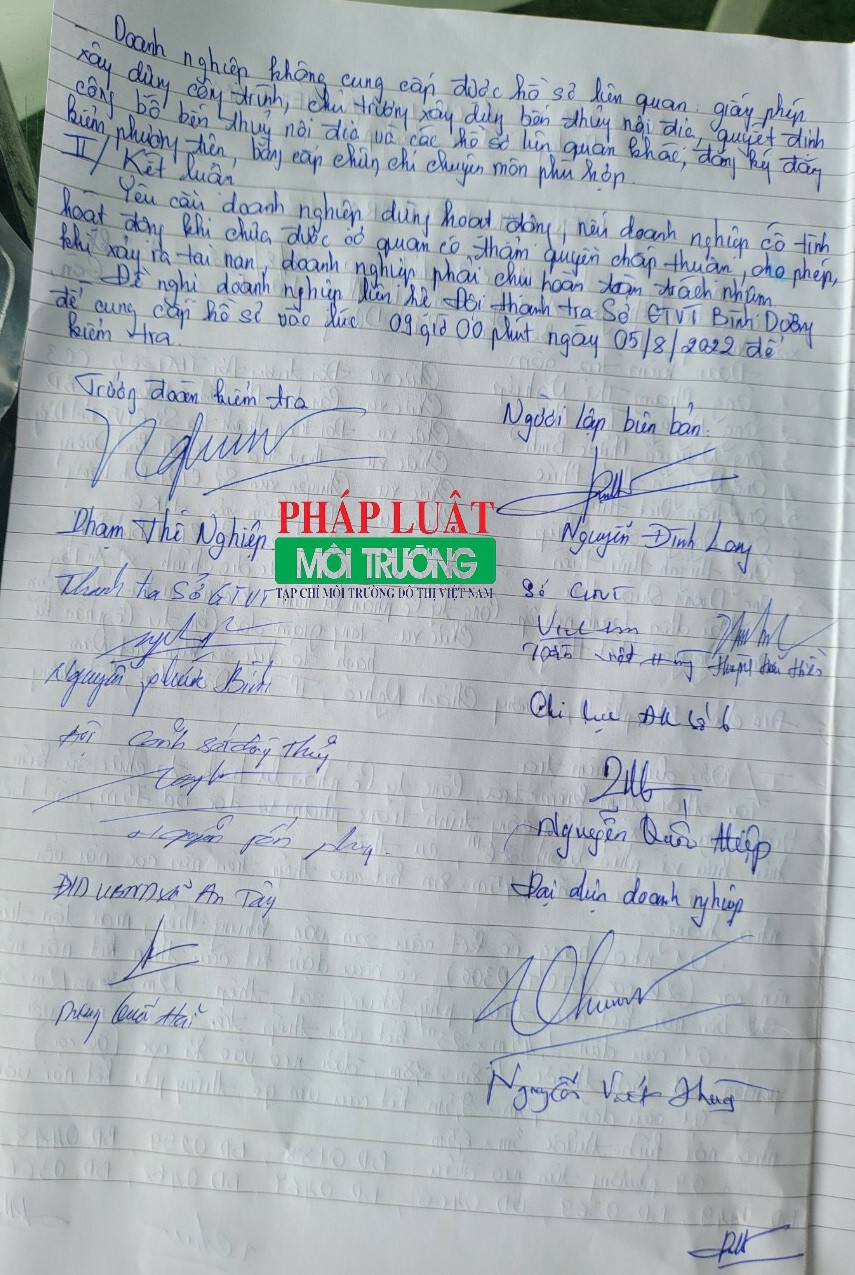 Doanh nghiệp không cung cấp được hồ sơ liên quan: giấy phép
xây dựng công trình, chủ trương xây dựng bến thủy nội địa, quyết định
công bố bến thủy nội địa và các hồ sơ liên quan khác, đăng ký đăng
kiểm phương tiện, bằng cấp chứng chỉ chuyên môn phù hợp.
II/ Kết luận
Yêu cầu doanh nghiệp dừng hoạt động, nếu doanh nghiệp cố tình
hoạt động khi chưa được cơ quan có thẩm quyền chấp thuận, cho phép,
khi xảy ra tai nạn, doanh nghiệp phải chịu hoàn toàn trách nhiệm.
Đề nghị doanh nghiệp liên hệ Đội thanh tra Sở GTVT Bình Dương
để cung cấp hồ sơ vào lúc 09 giờ 00 phút ngày 05/8/2022 để
kiểm tra.
Trưởng đoàn kiểm tra
Người lập biên bản.
Phạm Thế Nghiệp
Nguyễn Đình Long
PHÁP LUẬT
MÔI TRƯỜNG
TẠP CHÍ MÔI TRƯỜNG ĐÔ THỊ VIỆT NAM
Thanh tra Sở GTVT
Nguyễn Bình
Đội Cảnh sát đường thủy
Chi cục
Nguyễn Quốc Hiệp
Đại diện doanh nghiệp
ĐD UBND xã An Tây
Nguyễn Viết